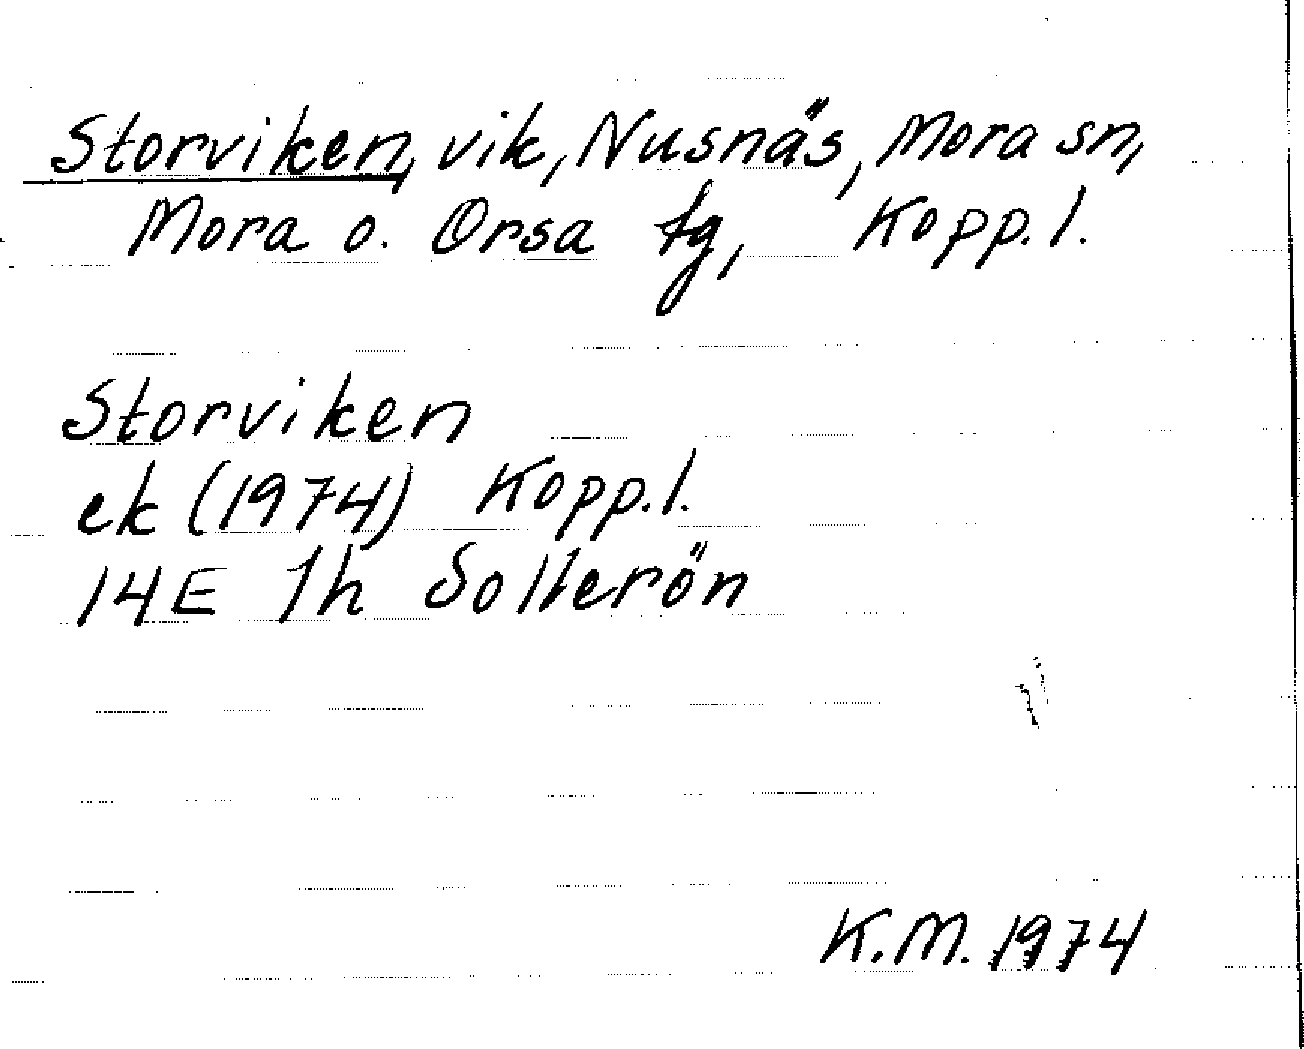 Storviken, vik, Nusnäs, Mora sn,
Mora o. Orsa tg, Kopp. l.
Storviken
ek (1974) Kopp. l.
14E 1h Sollerön
K.M. 1974